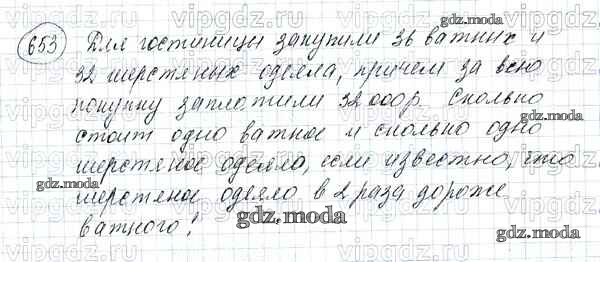 653 Для гостиницы закупили 36 ватных и
32 шерстяных одеяла, причем за всю
покупку заплатили 32 000 р. Сколько
стоит одно ватное и сколько одно
шерстяное одеяло, если известно, что
шерстяное одеяло в 2 раза дороже
ватного!
gdz.moda
gdz.moda
gdz.moda
gdz.moda
gdz.moda
gdz.moda
vipgdz.ru